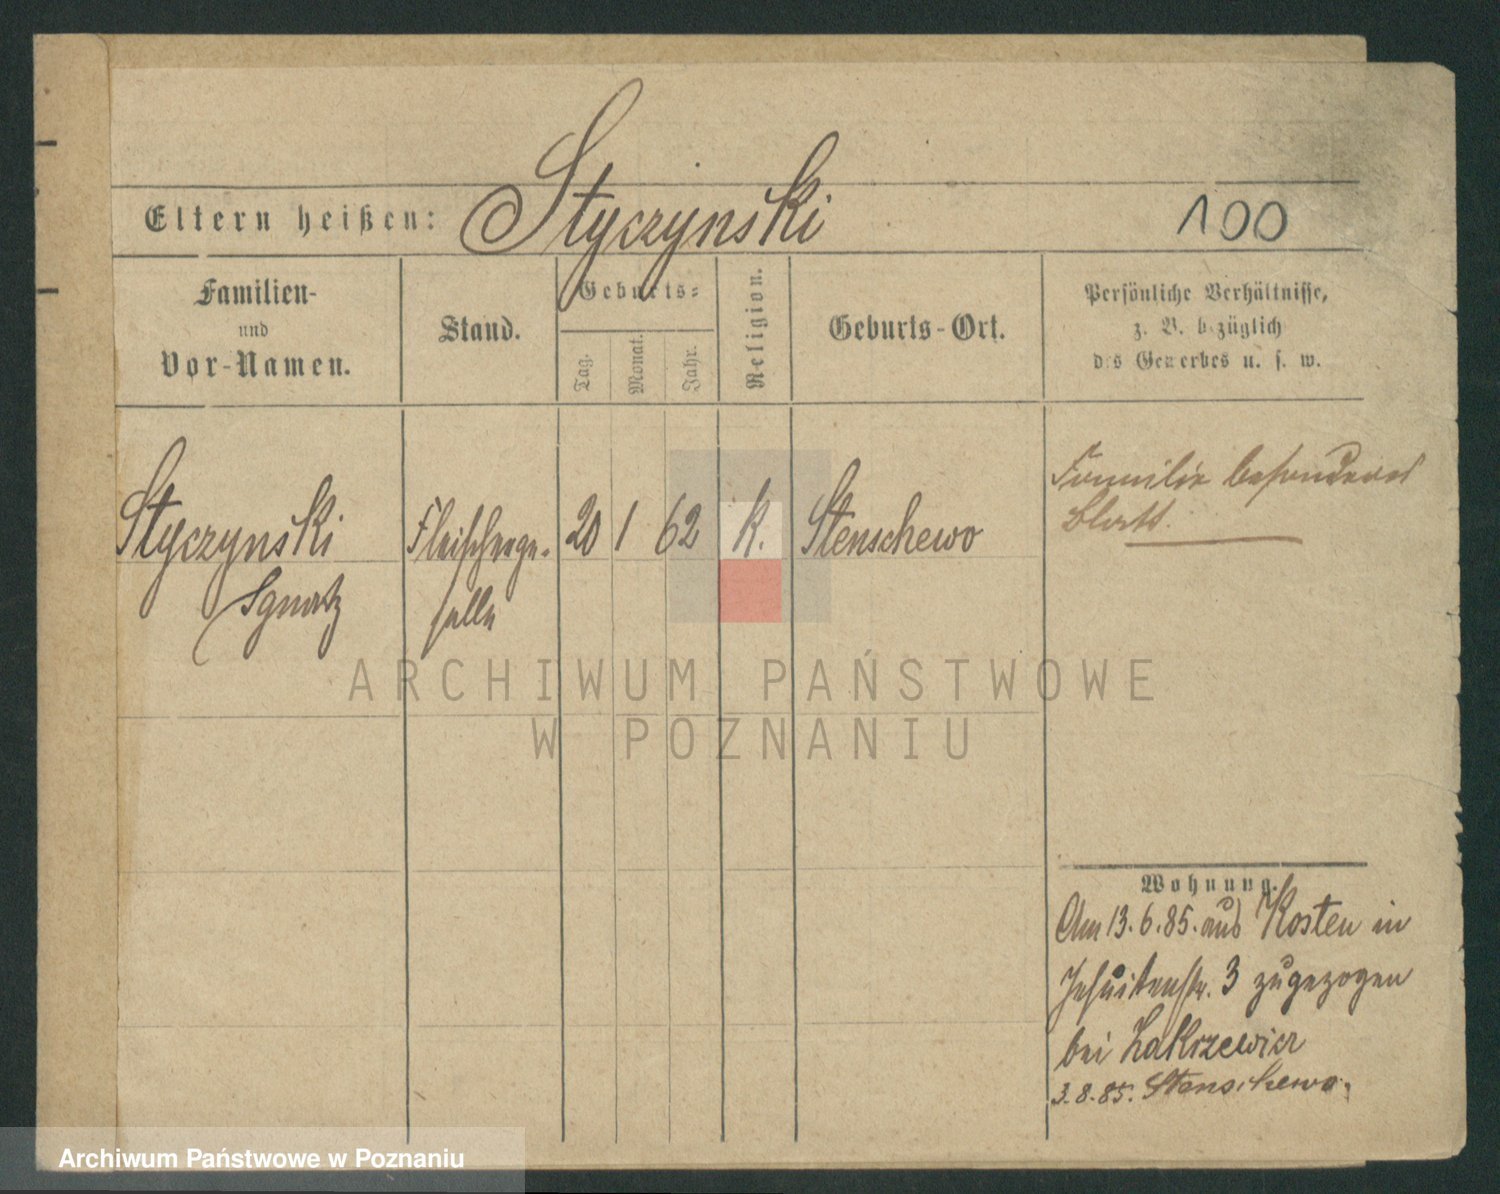 Styczynski
Eltern heißen:
100
Familien-
und
Vor-Namen.
Stand.
Geburts-
Tag.
Monat.
Jahr.
Religion.
Geburts-Ort.
Persönliche Verhältnisse,
z. B. bezüglich
des Gewerbes u. s. w.
Styczynski
Ignatz
Fleischerge-
selle
20
1
62
k.
Stenschewo
Familie besonderes
Blatt.
Wohnung.
Am 13.6.85. aus Kosten in
Jesuitenstr. 3 zugezogen
bei Zakrzewicz
3.8.85. Stenschewo.
ARCHIWUM PAŃSTWOWE
W POZNANIU
Archiwum Państwowe w Poznaniu